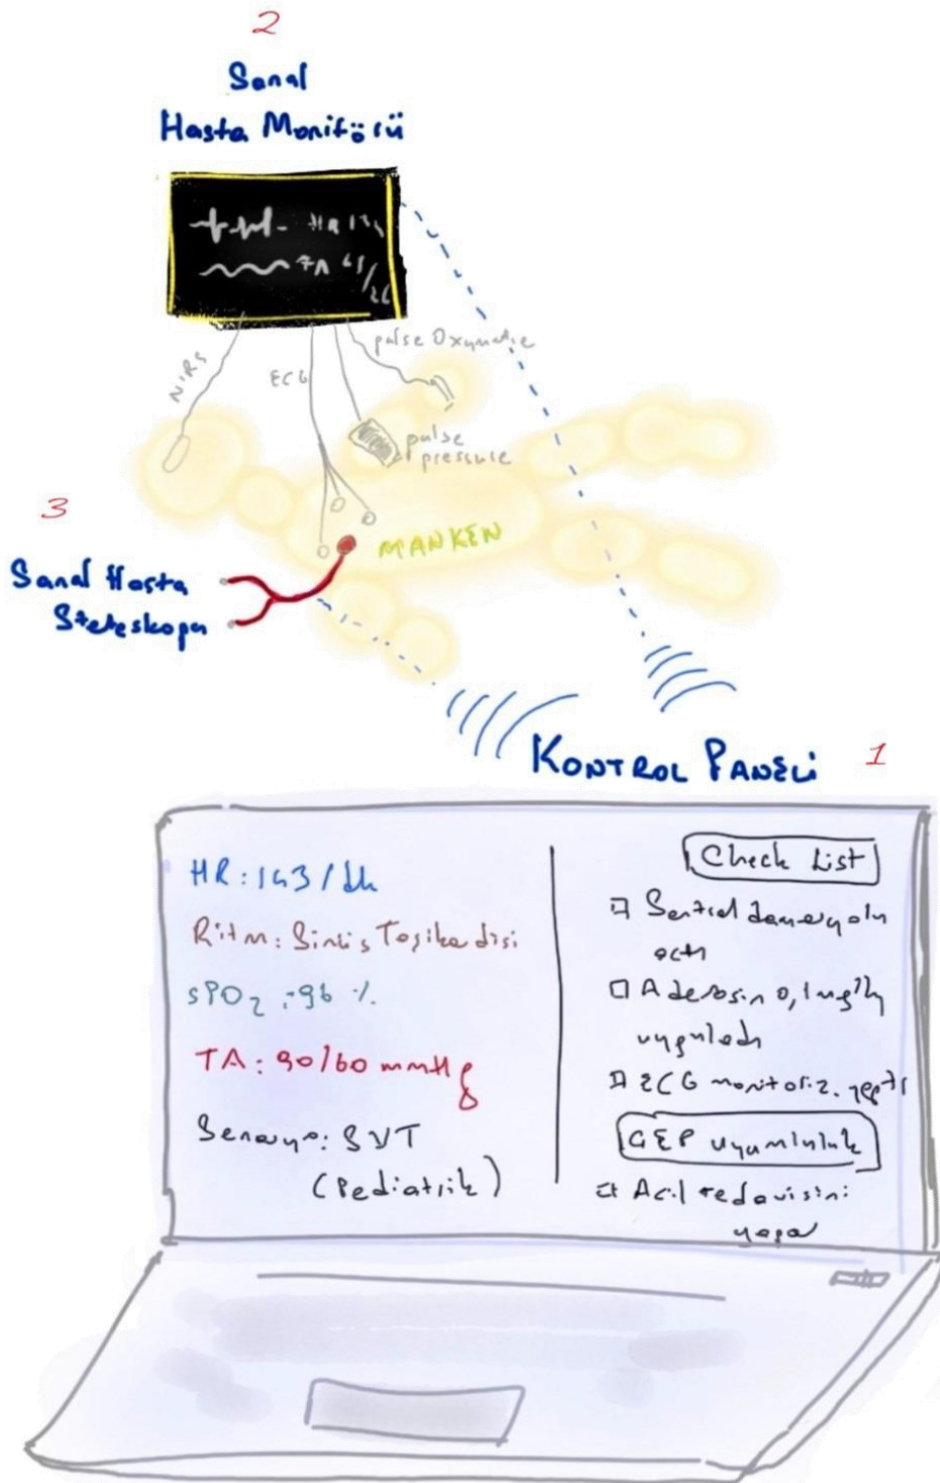 2
Sanal
Hasta Monitörü
HR
TA
NIRS
ECG
pulse Oxymetre
pulse
pressure
3
MANKEN
Sanal Hasta
Steteskopu
KONTROL PANELİ 1
HR: 143/dk
Ritm: Sinüs Taşikardisi
SPO2: 96 %
TA: 90/60 mmHg
Senaryo: SVT
(Pediatrik)
Check List
Santral damaryolu
açtı
Adenosin 0,1 mg/kg
uyguladı
ECG monitoriz. yaptı
ÇEP uyumluluk
Acil tedavisini
yapar